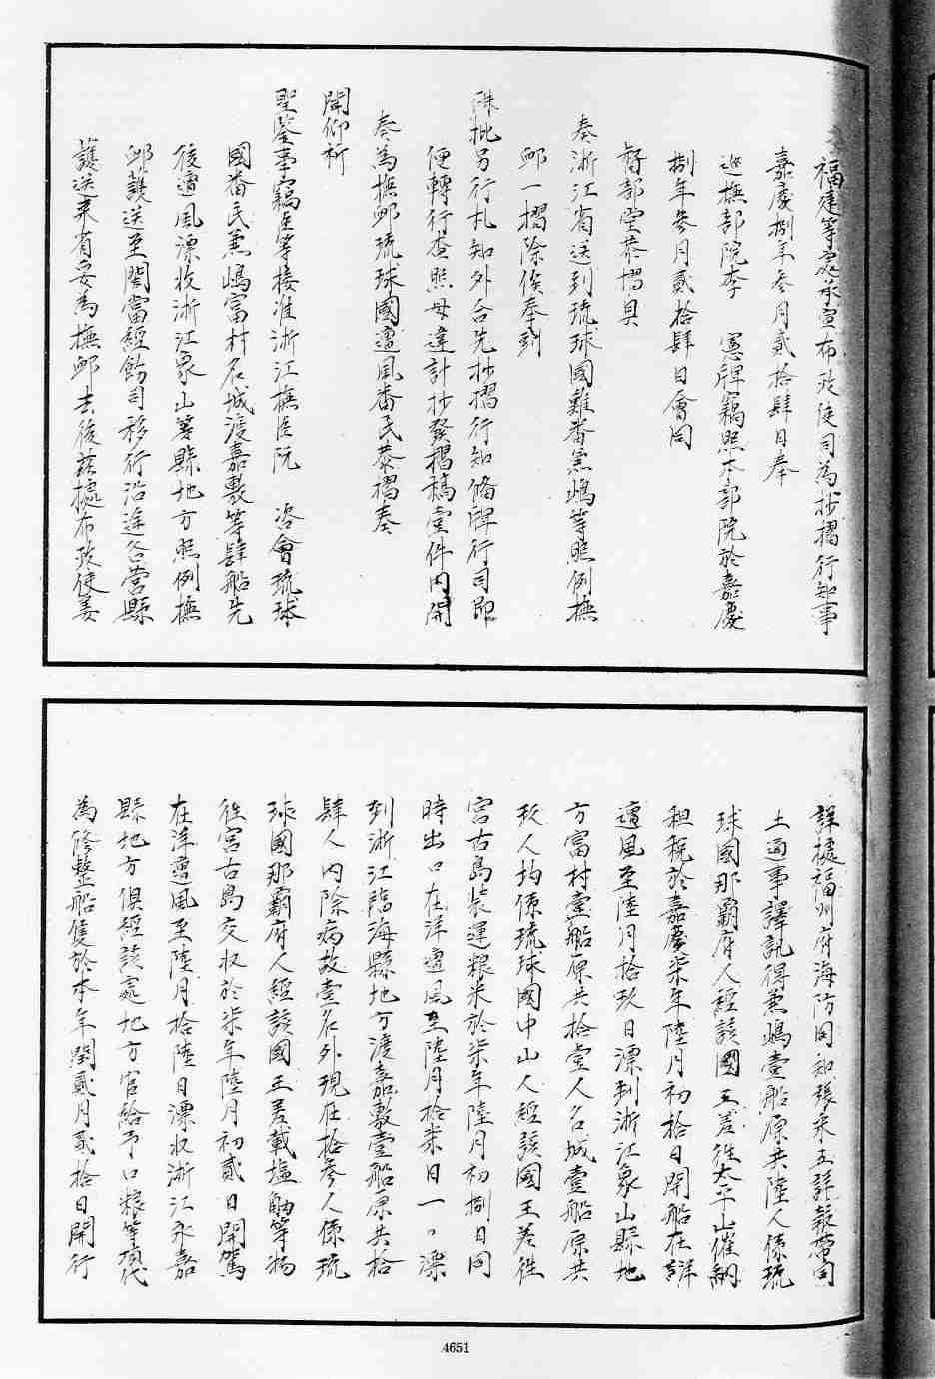 福建等處承宣布政使司為抄摺行知事
嘉慶捌年叁月貳拾肆日奉
巡撫部院李　憲牌竊照本部院於嘉慶
捌年叁月貳拾肆日會同
督部堂恭摺具
奏浙江省送到琉球國難番兼嶋等照例撫
卹一摺除俟奉到
硃批另行札知外合先抄摺行知備牌行司即
便轉行查照毋違計抄發摺稿壹件內開
奏為撫卹琉球國遭風番民恭摺奏
聞仰祈
聖鑒事竊臣等接准浙江撫臣阮　咨會琉球
國番民兼嶋富村名城渡嘉敷等肆船先
後遭風漂收浙江象山等縣地方照例撫
卹護送至閩當經飭司移行沿途各營縣
護送來省妥為撫卹去後茲據布政使姜
詳據福州府海防同知張采五詳報帶同
土通事譯訊得兼嶋壹船原共陸人係琉
球國那霸府人經該國王差往太平山催納
租稅於嘉慶柒年陸月初拾日開船在洋
遭風至陸月拾玖日漂到浙江象山縣地
方富村壹船原共拾壹人名城壹船原共
玖人均係琉球國中山人經該國王差往
宮古島裝運粮米於柒年陸月初捌日同
時出口在洋遭風至陸月拾柒日一口漂
到浙江臨海縣地方渡嘉敷壹船原共拾
肆人內除病故壹名外現在拾叁人係琉
球國那霸府人經該國王差載塩舳等物
往宮古島交收於柒年陸月初貳日開駕
在洋遭風至陸月拾陸日漂收浙江永嘉
縣地方俱經該處地方官給予口粮等項代
為修整船隻於本年閏貳月貳拾日開行
4651